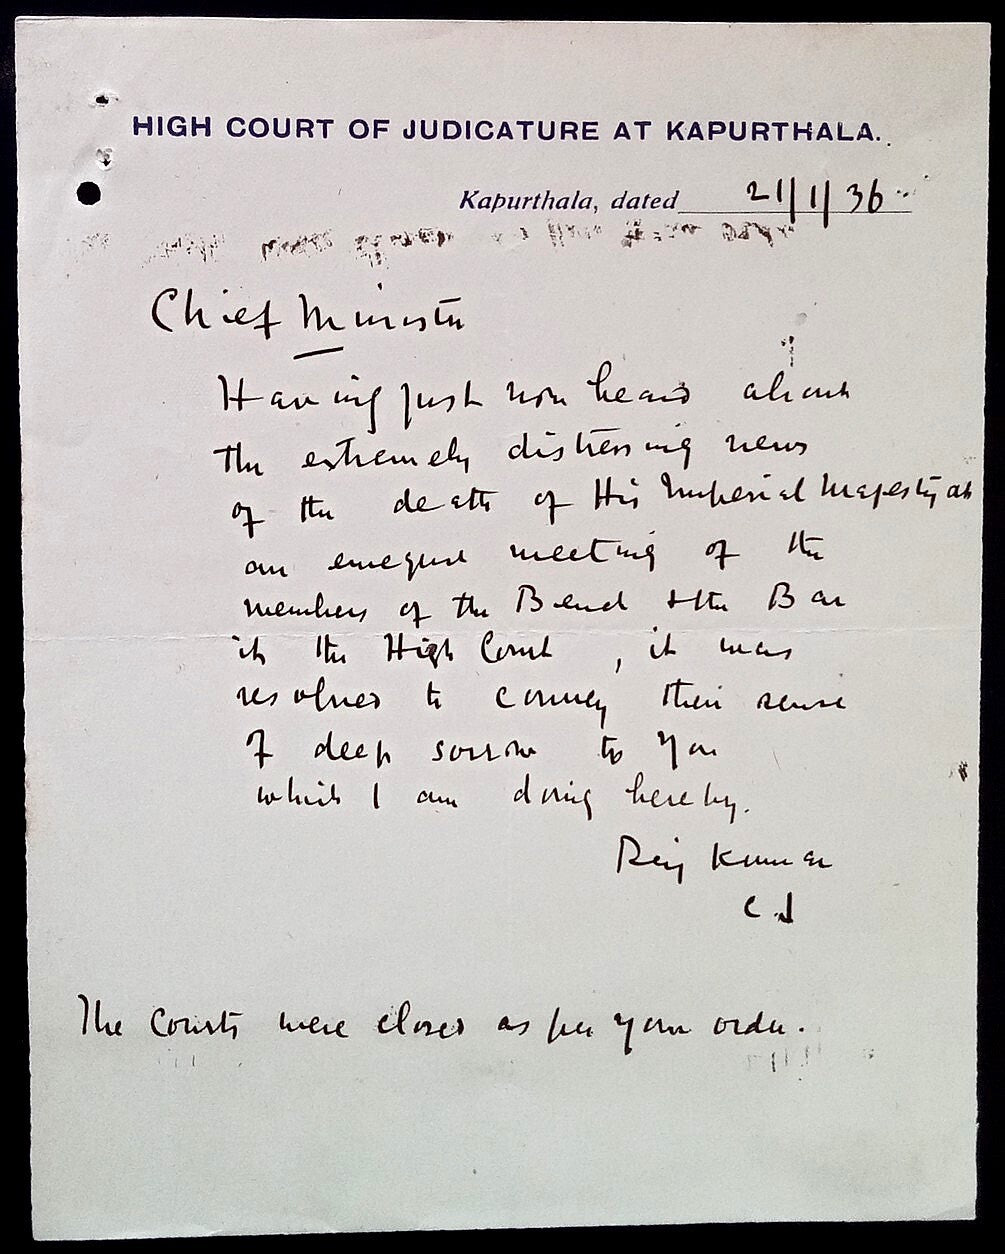 HIGH COURT OF JUDICATURE AT KAPURTHALA.
Kapurthala, dated 21/1/36
Chief Minister
Having just now heard about
the extremely distressing news
of the death of His Imperial Majesty at
an emergent meeting of the
members of the Bench & the Bar
in the High Court, it was
resolved to convey their sense
of deep sorrow to you
which I am doing hereby.
Raj Kumar
C.J
The Courts were closed as per your order.